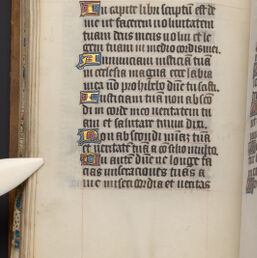 In capite libri scriptū est de
me ut facerem voluntatem
tuam deus meus volui et le
gem tuam in medio cordis mei.
Annunciavi iusticiam tuā
in ecclesia magna ecce labia
mea nō prohibebo dn̄e tu scisti.
Iusticiam tuā non abscō
di in corde meo veritatem tu
am et salutare tuum dixi.
Non abscondi mīaȝ tuā
et veritatē tuā a cōsilio multo.
Tu autē dn̄e ne longe fa
cias miseraciones tuas a
me misericordia et veritas